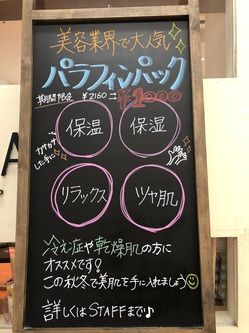 美容業界で大人気
パラフィンパック
期間限定 ¥2160 ⇒ ¥1000
カサカサ
した手に
保温
保湿
リラックス
ツヤ肌
冷え症や乾燥肌の方に
オススメです!
この秋冬で美肌を手に入れましょう
詳しくはSTAFFまで♪
A